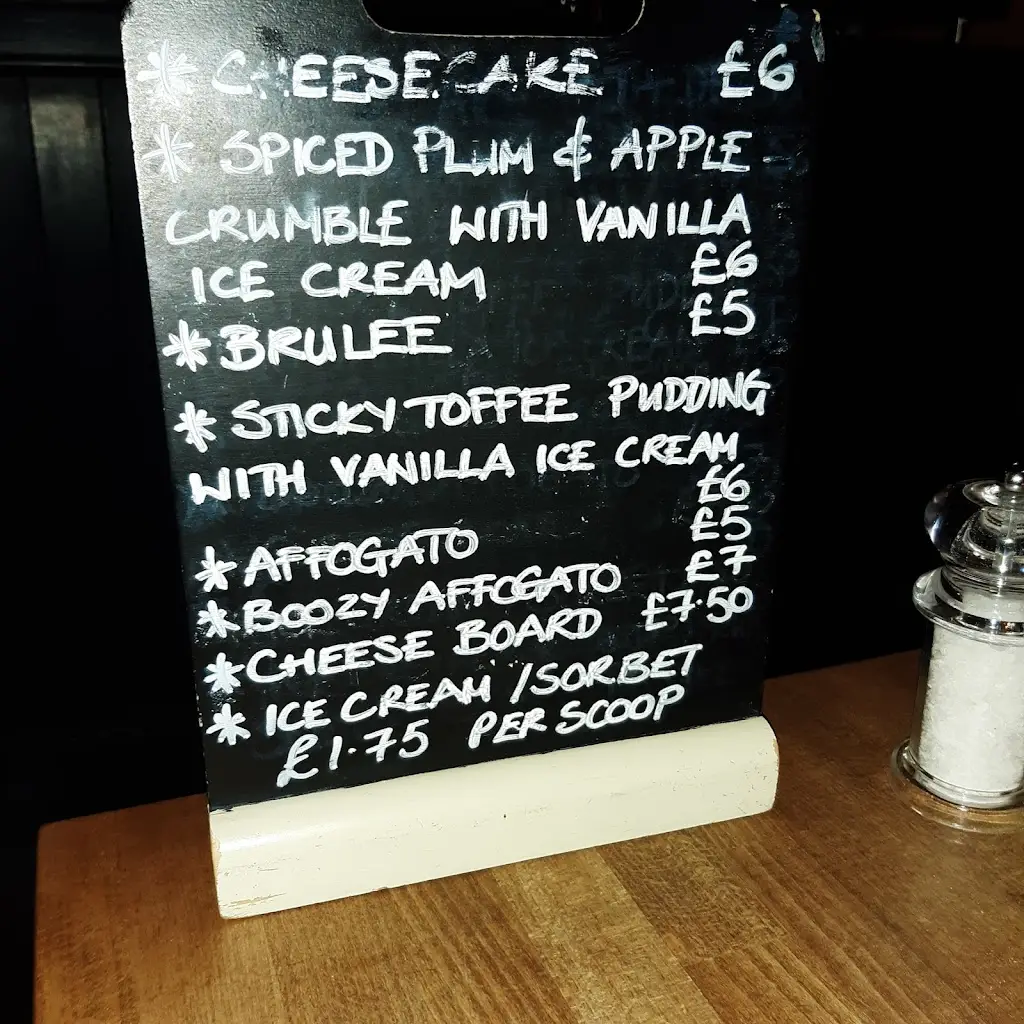 * CHEESECAKE £6
* SPICED PLUM & APPLE
CRUMBLE WITH VANILLA
ICE CREAM £6
* BRULEE £5
* STICKY TOFFEE PUDDING
WITH VANILLA ICE CREAM
£6
* AFFOGATO £5
* BOOZY AFFOGATO £7
* CHEESE BOARD £7.50
* ICE CREAM / SORBET
£1.75 PER SCOOP